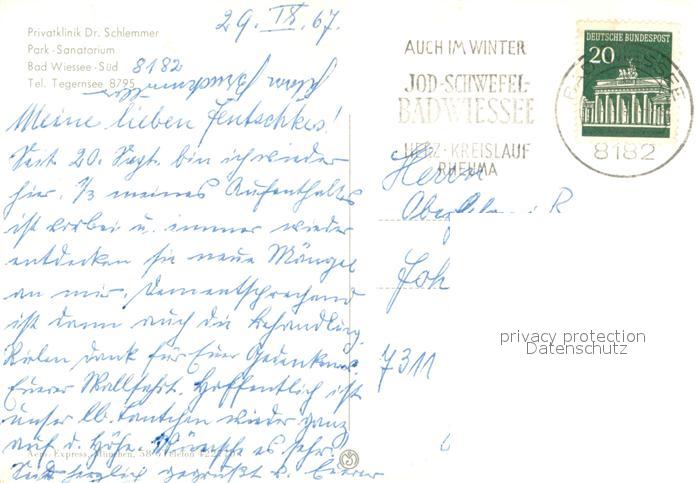 29. IX. 67.
Privatklinik Dr. Schlemmer
Park-Sanatorium
Bad Wiessee-Süd 8182
Tel. Tegernsee 8795
Meine lieben Jentschkes!
Seit 20. Sept. bin ich wieder
hier. 1/3 meines Aufenthalts
ist vorbei u. immer wieder
entdecken sie neue Mängel
an mir. Dementsprechend
ist dann auch die Behandlung.
Vielen Dank für Euer Gedenken
Eurer Wallfahrt. Hoffentlich ist
unser lb. Tantchen wieder ganz
auf d. Höhe. Wünsche es sehr.
Seid herzlich gegrüßt v. Eurer
Aero-Express, München
AUCH IM WINTER
JOD-SCHWEFEL-
BAD WIESSEE
HERZ-KREISLAUF
RHEUMA
DEUTSCHE BUNDESPOST
20
BAD WIESSEE
8182
Herrn
Joh
7311
privacy protection
Datenschutz